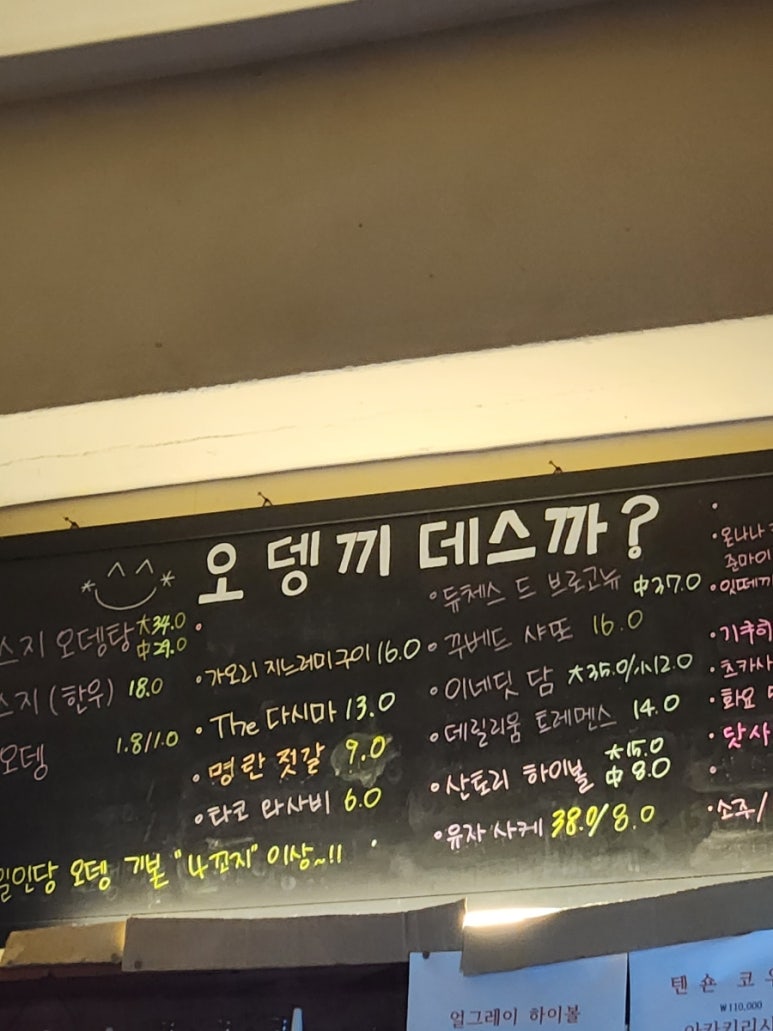 오뎅끼 데스까?
스지 오뎅탕 大34.0
中29.0
스지 (한우) 18.0
오뎅 1.8/1.0
일인당 오뎅 기본 "4꼬지" 이상~!!
• 가오리 지느러미구이 16.0
• The 다시마 13.0
• 명란 젓갈 9.0
• 타코 와사비 6.0
• 듀체스 드 브로고뉴 中37.0
• 꾸베드 샤또 16.0
• 이네딧 담 大35.0/小12.0
• 데릴리움 토레멘스 14.0
• 산토리 하이볼 大15.0
中 8.0
• 유자 사케 38.0/8.0
• 온나나
준마이
• 잇떼끼
• 기쿠히
• 츠카사
• 화요
• 닷사
• 소주/
얼그레이 하이볼
텐 숀 코
₩110,000